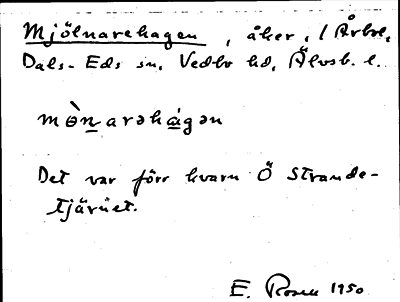 Mjölnarehagen, åker, / Årbol,
Dals-Eds sn, Vedbo hd, Älvsb. l.
mɵ̀narəhágən
Det var förr kvarn Ö Strande-
tjärnet.
E. Rosell 1950